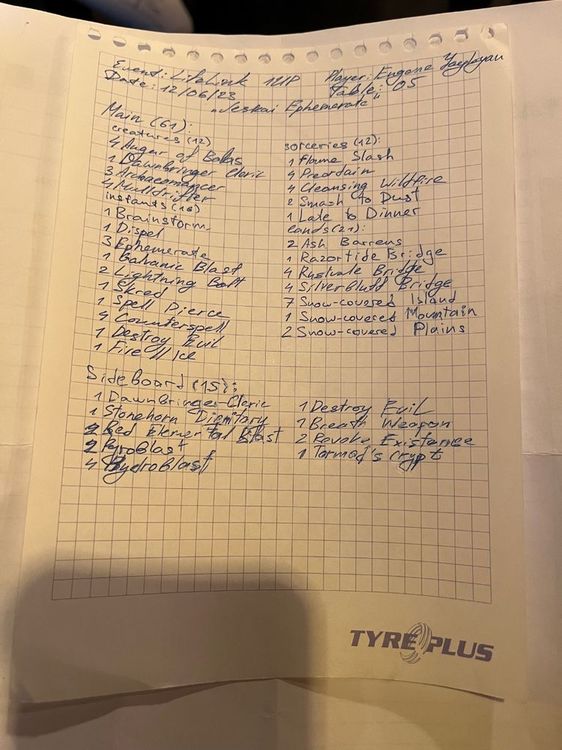 Event: LifeLock 1UP
Player: Eugene
Date: 12/06/23
Table: 05
"Jeskai Ephemerate"
Main (61):
creatures (12)
4 Augur of Bolas
1 Dawnbringer Cleric
3 Archaeomancer
4 Mulldrifter
instants (16)
1 Brainstorm
1 Dispel
3 Ephemerate
1 Galvanic Blast
2 Lightning Bolt
1 Skred
1 Spell Pierce
4 Counterspell
1 Destroy Evil
1 Fire // Ice
sorceries (12):
1 Flame Slash
4 Preordain
4 Cleansing Wildfire
2 Smash to Dust
1 Late to Dinner
lands (21):
2 Ash Barrens
1 Razortide Bridge
4 Rustvale Bridge
4 Silverbluff Bridge
7 Snow-covered Island
1 Snow-covered Mountain
2 Snow-covered Plains
Sideboard (15):
1 Dawnbringer Cleric
1 Stonehorn Dignitary
2 Red Elemental Blast
2 Pyroblast
4 Hydroblast
1 Destroy Evil
1 Breath Weapon
2 Revoke Existence
1 Tormod's Crypt
TYREPLUS